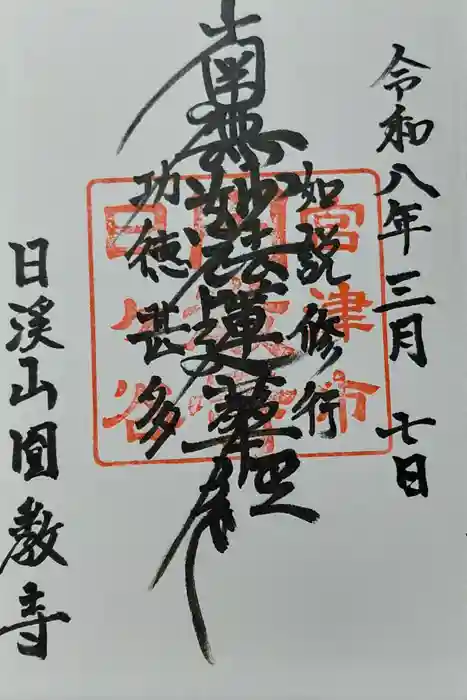 令和八年三月七日
如説修行
南無妙法蓮華経
功徳甚多
日溪山圓教寺
宮津市
日谷